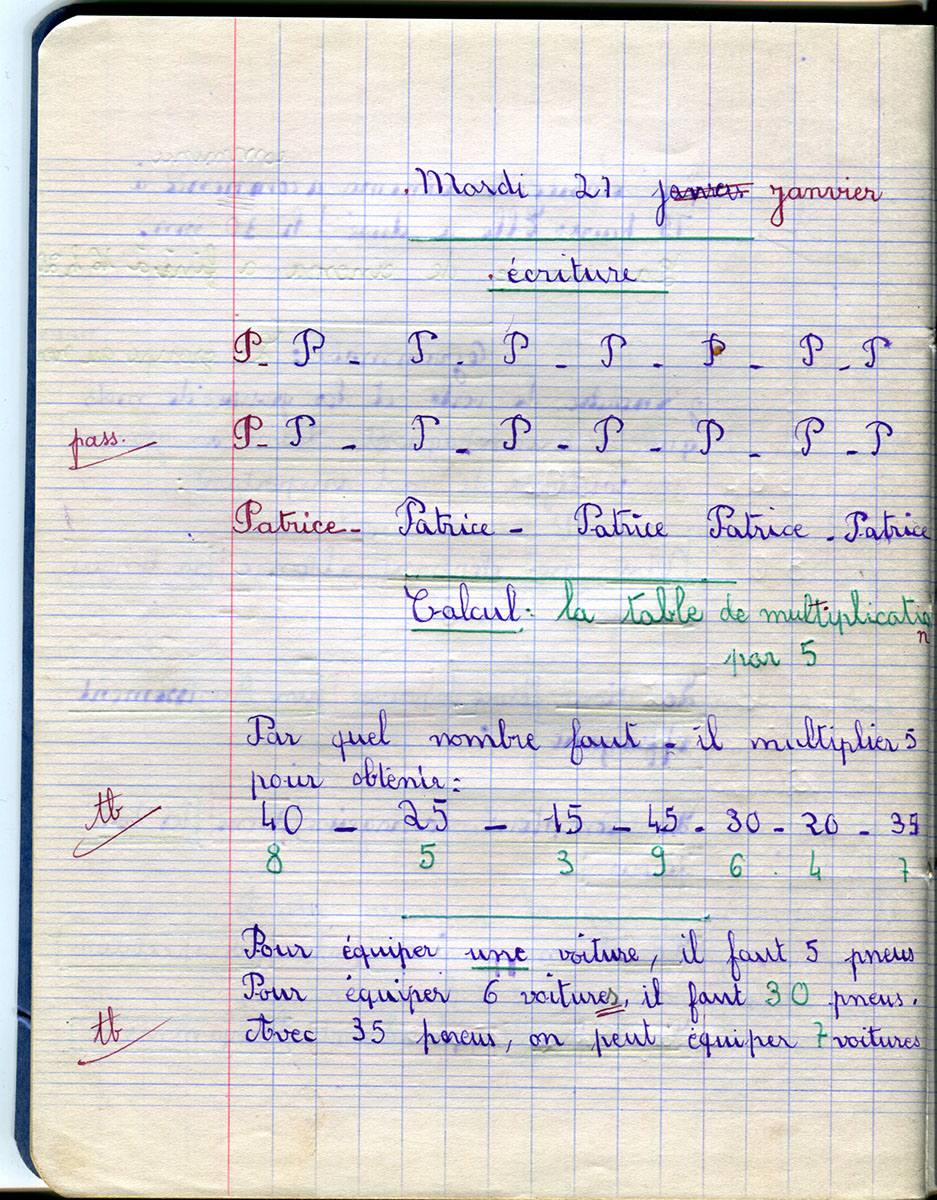 Mardi 21 janvier
écriture
P - P - P - P - P - P - P - P
pass. P - P - P - P - P - P - P - P
Patrice - Patrice - Patrice Patrice - Patrice
Calcul : la table de multiplication
par 5
Par quel nombre faut-il multiplier 5
pour obtenir :
tb 40 - 25 - 15 - 45 - 30 - 20 - 35
8 5 3 9 6 . 4 7
Pour équiper une voiture, il faut 5 pneus
Pour équiper 6 voitures, il faut 30 pneus.
tb Avec 35 pneus, on peut équiper 7 voitures